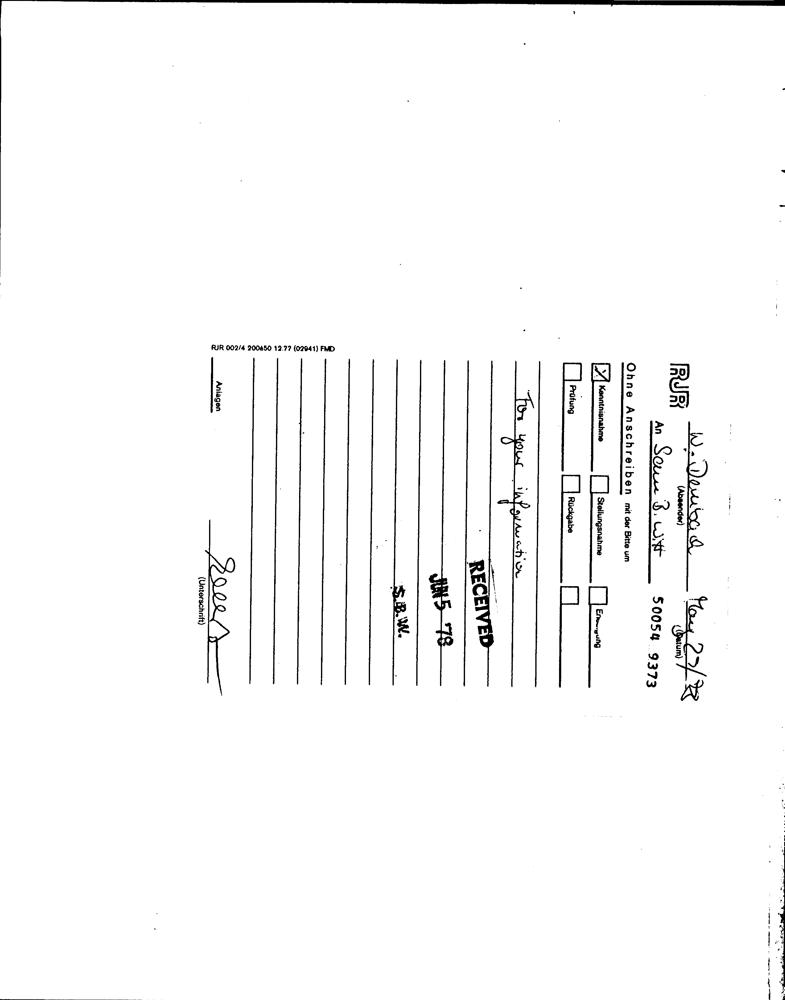 RJR W. May 23/78
(Absender) (Datum)
An Sam B. Witt 50054 9373
Ohne Anschreiben mit der Bitte um
Kenntnisnahme Stellungnahme
Prüfung Rückgabe
For your information
RECEIVED
JUN 5 '78
S.B.W.
Anlagen (Unterschrift)
RJR 002/4 200x50 12.77 (02941) FMD